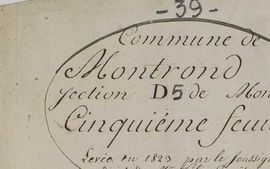 - 39 -
Commune de
Montrond
Section D5 de Mon
Cinquiéme feui
Levée en 1829 par le soussig